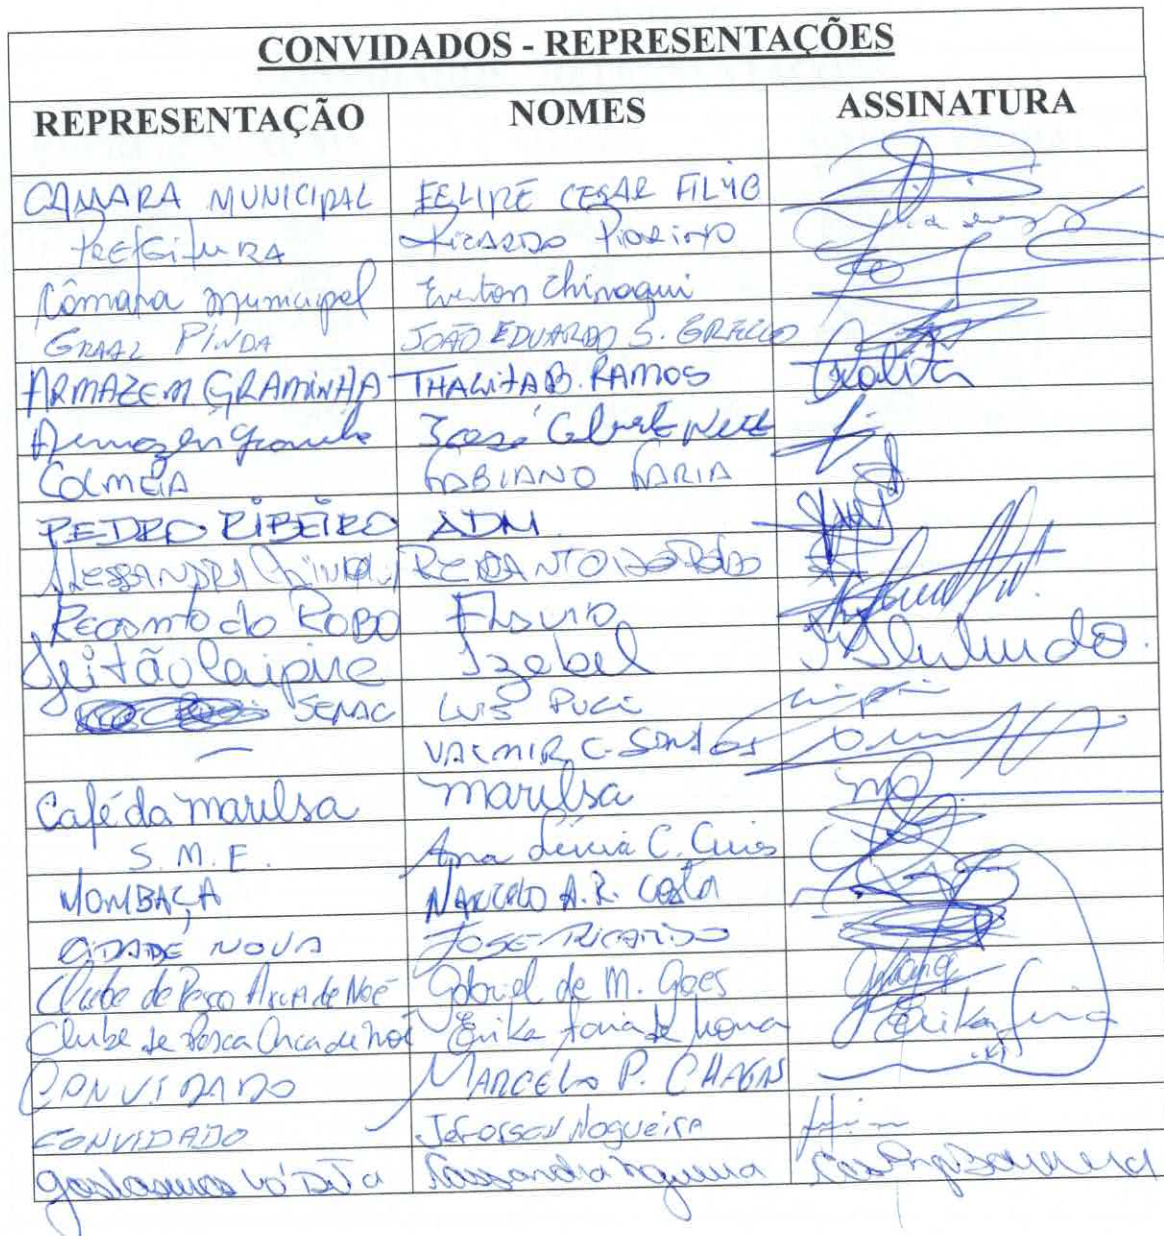 CONVIDADOS - REPRESENTAÇÕES
REPRESENTAÇÃO NOMES ASSINATURA
CAMARA MUNICIPAL FELIPE CESAR FILHO
PREFEITURA RICARDO PIORINO
Câmara municipal Everton Chinaqui
GRAAL PINDA JOÃO EDUARDO S.
ARMAZEM GRAMINHA THALITA B. RAMOS Thalita
José
COLMEIA FABIANO FARIA
PEDRO RIBEIRO ADM
ALESSANDRA RECANTO DO ROBO
Recanto do ROBO Flavio
Leitão Caipira Izabel
SENAC LUIS PUCI
— VALMIR C. SANTOS
Café da marilsa marilsa
S. M. E. Ana Lúcia C.
MOMBAÇA MARCELO A. R. COSTA
CIDADE NOVA JOSE RICARDO
Clube de Pesca Arca de Noé Gabriel de M. Goes
Clube de Pesca Arca de Noé Erika Faria de Erika Faria
CONVIDADO MARCELO P. CHAGAS
CONVIDADO Jeferson Nogueira
Cassandra